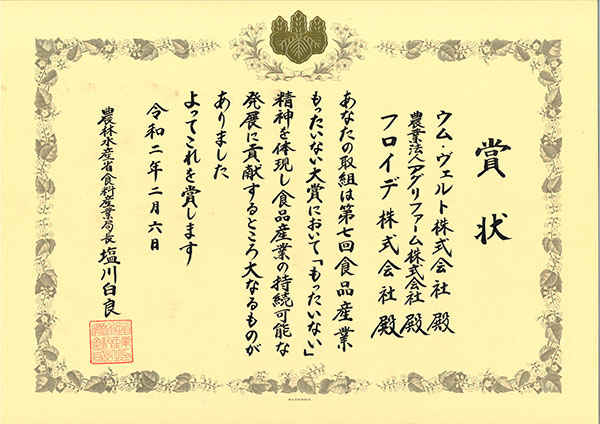 賞状
ウム・ヴェルト株式会社 殿
農業法人アグリファーム株式会社 殿
フロイデ株式会社 殿
あなたの取組は第七回食品産業
もったいない大賞において「もったいない」
精神を体現し食品産業の持続可能な
発展に貢献するところ大なるものが
ありました
よってこれを賞します
令和二年二月六日
農林水産省食料産業局長 塩川白良